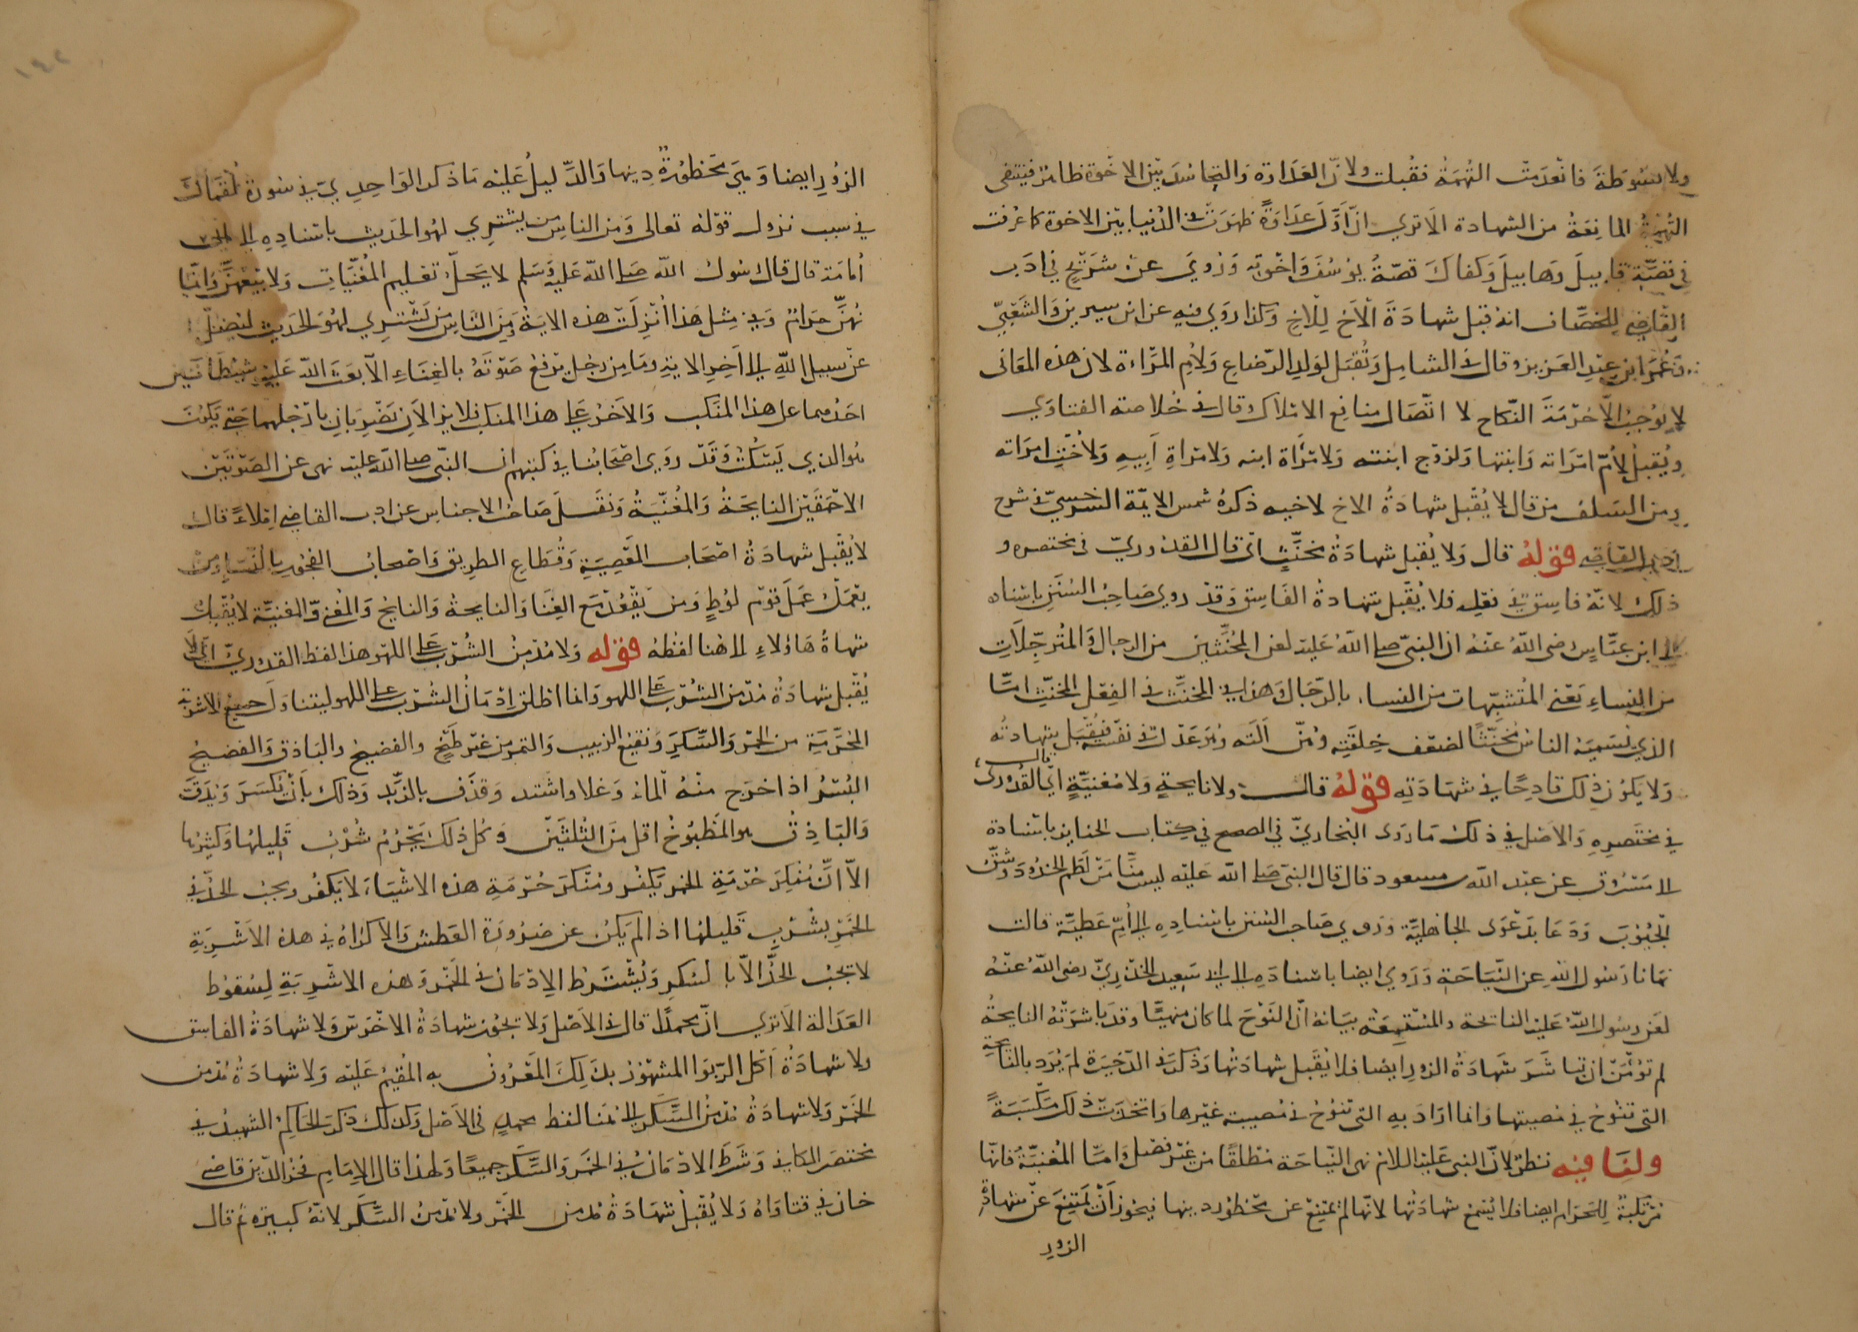 ولا مبسوطة فانعدمت التهمة فقبلت ولان العداوة والتحاسد بين الاخوة ظاهر فينتفي
التهمة المانعة من الشهادة الا ترى ان اول عداوة ظهرت في الدنيا بين الاخوة كما عرفت
في قصة قابيل وهابيل وكفاك قصة يوسف واخوته وروي عن شريح في ادب
القاضي للخصاف انه قبل شهادة الاخ للاخ وكذا روي فيه عن ابن سيرين والشعبي
وعمر ابن عبد العزيز وقال في الشامل وتقبل لولد الرضاع ولام المراة لان هذه المعاني
لا يوجب الا حرمة النكاح لا اتصال منافع الاملاك وقال في خلاصة الفتاوي
ويقبل لام امراته وابنتها ولزوج ابنته ولامرأة ابنه ولامراة ابيه ولاخت امراته
ومن السلف من قال لا يقبل شهادة الاخ لاخيه ذكره شمس الايمة السرخسي في شرح
ادب القاضي قوله قال ولا يقبل شهادة مخنث اي قال القدوري في مختصره و
ذلك لانه فاسق في فعله فلا يقبل شهادة الفاسق وقد روى صاحب السنن باسناده
الى ابن عباس رضى الله عنه ان النبي صلى الله عليه لعن المخنثين من الرجال والمترجلات
من النساء يعني المتشبهات من النساء بالرجال وهذا في المخنث في الفعل المخنث اما
الذي يسميه الناس مخنثا لضعف خلقته وهن آلته وهو عدل في نفسه فيقبل شهادته
ولا يكون ذلك قادحا في شهادته قوله قال ولا نايحة ولا مغنية اي قال القدوري
في مختصره والاصل في ذلك ما روى البخاري في الصحيح في كتاب الجنايز باسناده
الى مسروق عن عبد الله مسعود قال قال النبي صلى الله عليه ليس منا من لطم الخدود وشق
الجيوب ودعا بدعوى الجاهلية وروي صاحب السنن باسناده الى ام عطية قالت
نهانا رسول الله عن النياحة وروي ايضا باسناده الى ابي سعيد الخدري رضى الله عنه
لعن رسول الله عليه النائحة والمستمعة بيانه ان النوح لما كان منهيا وقد باشرته النايحة
لم تؤمن ان تباشر شهادة الزور ايضا فلا يقبل شهادتها وذكر في الذخيرة لم يرد بالنايحة
التي تنوح في مصيبتها وانما اراد به التي تنوح في مصيبة غيرها واتخذت ذلك مكسبة
ولنا فيه نظر لان النبي عليه السلام نهى النياحة مطلقا من غير فصل واما المغنية فانها
مرتكبة للحرام ايضا فلا يسمع شهادتها لانها لم تمتنع عن محظور دينها فيجوز أن لا تمتنع عن شهادة
الزور
الزور ايضا وهي محظورة دينها والدليل عليه ما ذكر الواحدي في سورة لقمان
في سبب نزول قوله تعالى ومن الناس من يشتري لهو الحديث باسناده الى ابي
أمامة قال قال رسول الله صلى الله عليه وسلم لا يحل تعليم المغنيات ولا بيعهن واثما
نهن حرام وفي مثل هذا أنزلت هذه الاية ومن الناس من يشتري لهو الحديث ليضل
عن سبيل الله الى اخر الاية وما من رجل يرفع صوته بالغناء الا بعث الله عليه شيطانين
احدهما على هذا المنكب والاخر على هذا المنكب فلا يزالان يضربان بارجلهما حتى يكون
هو الذي يسكت وقد روي اصحابنا في كتبهم ان النبي صلى الله عليه نهى عن الصوتين
الاحمقين النايحة والمغنية ونقل صاحب الاجناس عن ادب القاضي املاءً قال
لا يقبل شهادة اصحاب المعصية وقطاع الطريق واصحاب الفجور بالنساء ومن
يعمل عمل قوم لوط ومن يقعد مع الغنا والنايحة والنايح والمغني والمغنية لا يقبل
شهادة هاؤلاء الى هنا لفظه قوله ولا مدمن الشرب على اللهو هذا لفظ القدوري اي لا
يقبل شهادة مدمن الشرب على اللهو وانما اطلق ادمان الشرب على اللهو ليتناول جميع الاشربة
المحرمة من الخمر والسكر ونقيع الزبيب والتمر من غير طبخ والفضيخ والباذق والفضيخ
البسر اذا خرج منه الماء وغلا واشتد وقذف بالزبد وذلك بأن يكسر ويدق
والباذق هو المطبوخ اقل من الثلثين وكل ذلك يحرم شرب قليلها وكثيرها
الا ان منكر حرمة الخمر يكفر ومنكر حرمة هذه الاشياء لا يكفر ويجب الحد في
الخمر بشرب قليلها اذا لم يكن عن ضرورة العطش والاكراه في هذه الاشربة
لا يجب الحد الا بالسكر ويشترط الادمان في الخمر وهذه الاشربة لسقوط
العدالة الا ترى ان محمدا قال في الاصل ولا يجوز شهادة الاخرس ولا شهادة الفاسق
ولا شهادة آكل الربوا المشهور بذلك المعروف به المقيم عليه ولا شهادة مدمن
الخمر ولا شهادة مدمن السكر الى هنا لفظ محمد في الاصل وكذلك ذكر الحاكم الشهيد في
مختصر الكافي وشرط الادمان في الخمر والسكر جميعا ولهذا قال الامام فخر الدين قاضي
خان في فتاواه ولا يقبل شهادة مدمن الخمر ولا مدمن السكر لانه كبيرة ثم قال